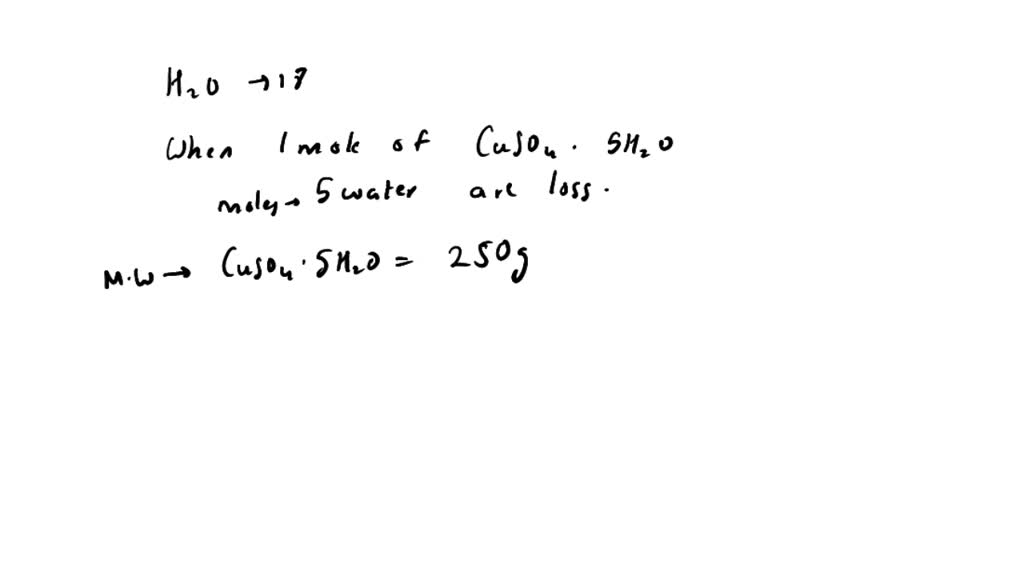 H₂O → 18
When 1 mole of CuSO₄ · 5H₂O
moles → 5 water are loss.
M.W → CuSO₄ · 5H₂O = 250g